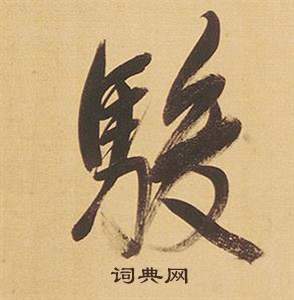 駿
词典网